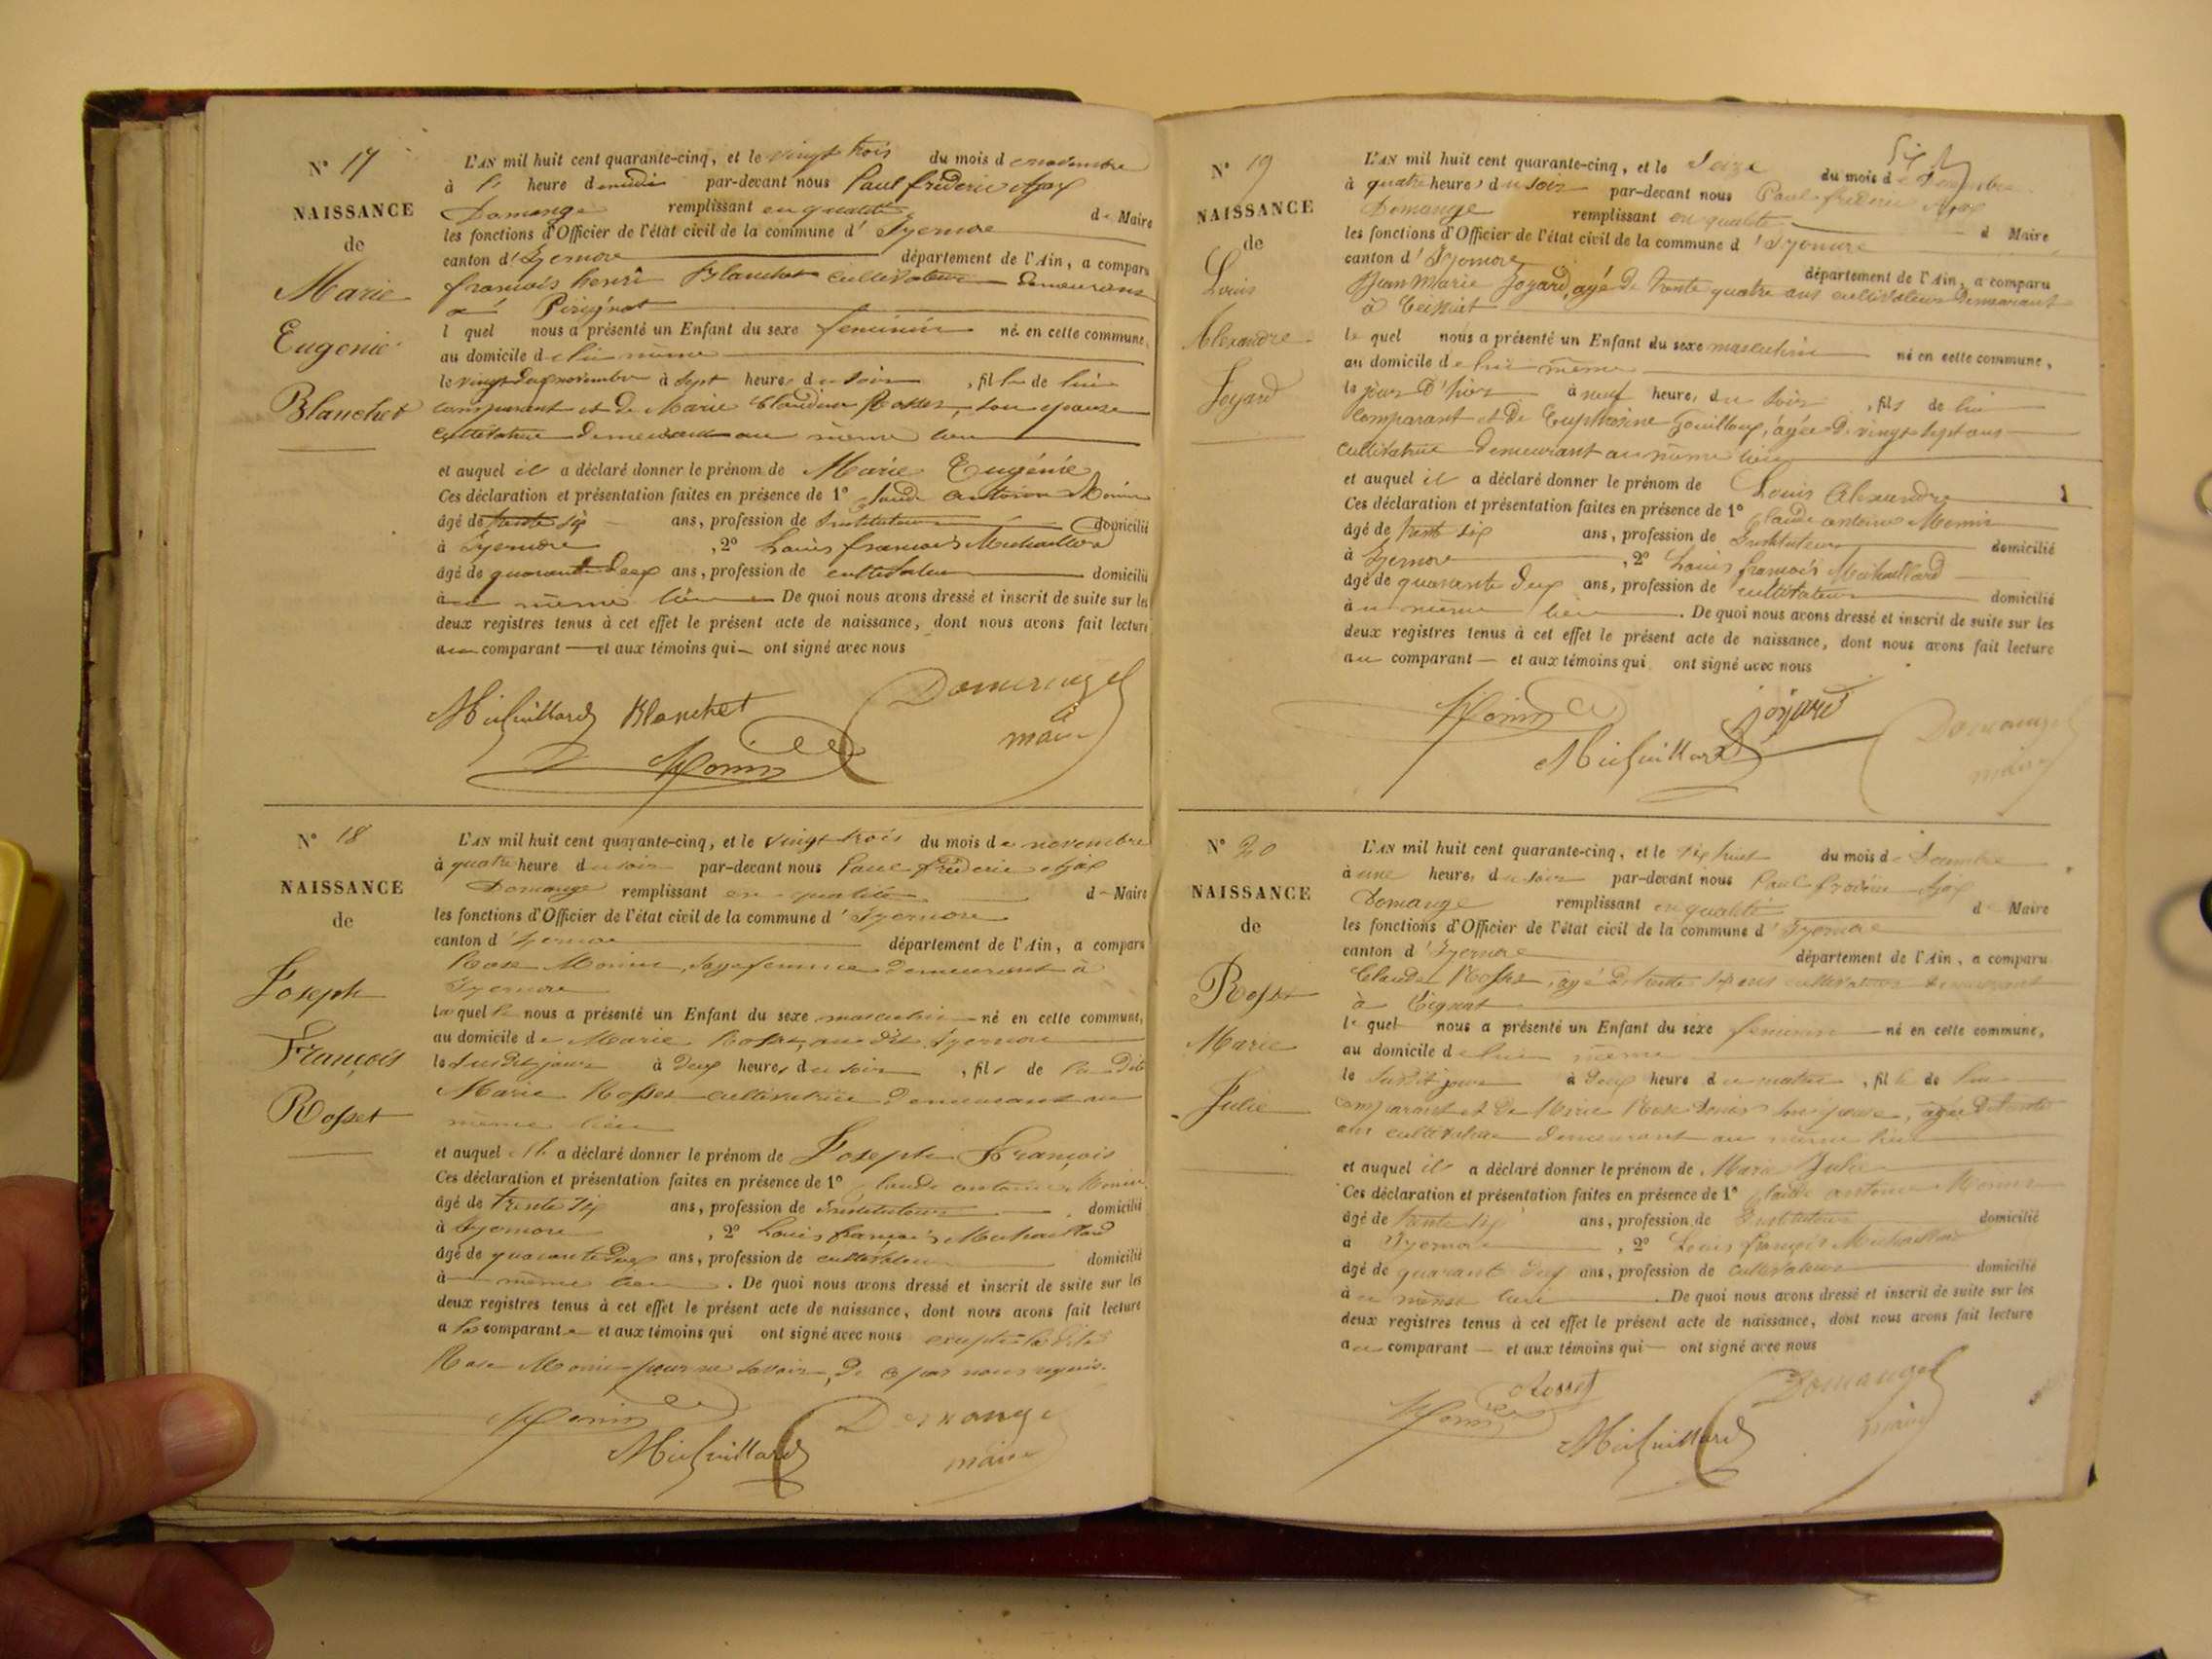 N° 17
NAISSANCE
de
Marie
Eugenie
Blanchet
L'AN mil huit cent quarante-cinq, et le vingt trois du mois de novembre
à l' heure de midi par-devant nous Paul frederic Ajax
Domange remplissant en qualité de Maire
les fonctions d'Officier de l'état civil de la commune d' Izernore
canton d' Izernore département de l'Ain, a comparu
francois henri Blanchet cultivateur demeurant
à
l quel nous a présenté un Enfant du sexe feminin né en cette commune,
au domicile de lui même
le vingt deux novembre à sept heures du soir, fille de lui
comparant et de Marie Claudine Rosset, son epouse
cultivatrice demeurant au même lieu
et auquel il a déclaré donner le prénom de Marie Eugénie
Ces déclaration et présentation faites en présence de 1° Claude antoine Monin
âgé de trente six ans, profession de Instituteur domicilié
à Izernore, 2° Louis francois Michaillard
âgé de quarante deux ans, profession de cultivateur domicilié
au même lieu De quoi nous avons dressé et inscrit de suite sur les
deux registres tenus à cet effet le présent acte de naissance, dont nous avons fait lecture
au comparant et aux témoins qui ont signé avec nous
Michaillard Blanchet Domange
maire
Monin
N° 18
NAISSANCE
de
Joseph
François
Rosset
L'AN mil huit cent quarante-cinq, et le vingt trois du mois de novembre
à quatre heure du soir par-devant nous Paul fréderic Ajax
Domange remplissant en qualité de Maire
les fonctions d'Officier de l'état civil de la commune d' Izernore
canton d' Izernore département de l'Ain, a comparu
Rose Monin, sage femme demeurant à
Izernore
laquelle nous a présenté un Enfant du sexe masculin né en cette commune,
au domicile de Marie Rosset, au dit Izernore
le susdit jour à deux heures du soir, fils de la dite
Marie Rosset cultivatrice demeurant au
même lieu
et auquel elle a déclaré donner le prénom de Joseph François
Ces déclaration et présentation faites en présence de 1° Claude antoine Monin
âgé de trente six ans, profession de Instituteur domicilié
à Izernore, 2° Louis francois Michaillard
âgé de quarante deux ans, profession de cultivateur domicilié
au même lieu. De quoi nous avons dressé et inscrit de suite sur les
deux registres tenus à cet effet le présent acte de naissance, dont nous avons fait lecture
a la comparante et aux témoins qui ont signé avec nous excepté la dite
Rose Monin pour ne savoir, de ce par nous requis.
Monin Domange
Michaillard maire
N° 19
NAISSANCE
de
Louis
Alexandre
Joyard
L'AN mil huit cent quarante-cinq, et le Seize du mois de Décembre
à quatre heures du soir par-devant nous Paul frederic Ajax
Domange remplissant en qualité d Maire
les fonctions d'Officier de l'état civil de la commune d' Izernore
canton d' Izernore département de l'Ain, a comparu
Jean Marie Joyard, agé de trente quatre ans cultivateur demeurant
à Ceissiat
le quel nous a présenté un Enfant du sexe masculin né en cette commune,
au domicile de lui même
le jour d'hier à neuf heures du soir, fils de lui
Comparant et de Euphrosine Gouilloux, agée de vingt sept ans
cultivatrice demeurant au même lieu
et auquel il a déclaré donner le prénom de Louis Alexandre
Ces déclaration et présentation faites en présence de 1° Claude antoine Monin
âgé de trente six ans, profession de Instituteur domicilié
à Izernore, 2° Louis francois Michaillard
âgé de quarante deux ans, profession de cultivateur domicilié
au même lieu. De quoi nous avons dressé et inscrit de suite sur les
deux registres tenus à cet effet le présent acte de naissance, dont nous avons fait lecture
au comparant et aux témoins qui ont signé avec nous
Monin joyard Domange
Michaillard maire
N° 20
NAISSANCE
de
Rosset
Marie
Julie
L'AN mil huit cent quarante-cinq, et le dix huit du mois de Decembre
à une heure, du soir par-devant nous Paul frederic Ajax
Domange remplissant en qualité de Maire
les fonctions d'Officier de l'état civil de la commune d' Izernore
canton d' Izernore département de l'Ain, a comparu
Claude Rosset, agé de trente ans cultivateur demeurant
à
le quel nous a présenté un Enfant du sexe feminin né en cette commune,
au domicile de lui même
le susdit jour à deux heure du matin, fille de lui
comparant et de Marie Rose son epouse, agée de trente
ans cultivatrice demeurant au même lieu
et auquel il a déclaré donner le prénom de Marie Julie
Ces déclaration et présentation faites en présence de 1° Claude antoine Monin
âgé de trente six ans, profession de Instituteur domicilié
à Izernore, 2° Louis françois Michaillard
âgé de quarante deux ans, profession de cultivateur domicilié
au même lieu. De quoi nous avons dressé et inscrit de suite sur les
deux registres tenus à cet effet le présent acte de naissance, dont nous avons fait lecture
au comparant et aux témoins qui ont signé avec nous
Rosset Domange
Monin Michaillard maire